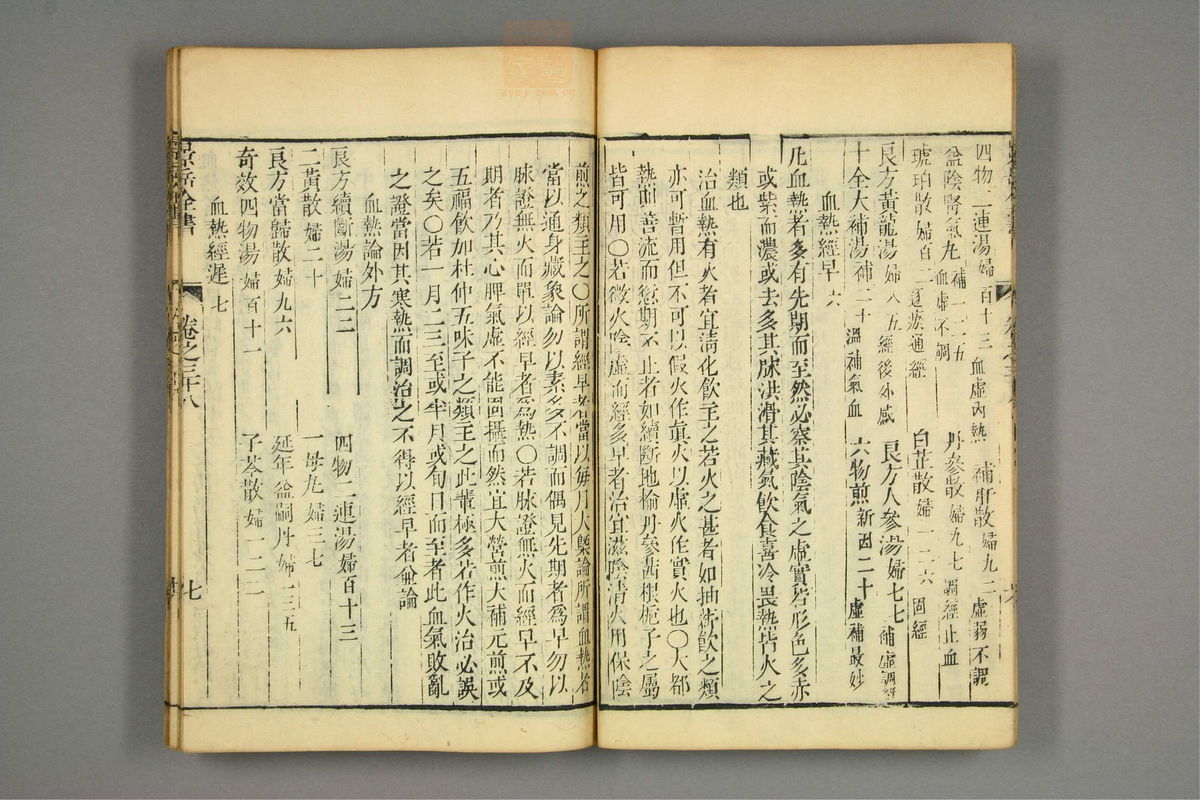 四物二連湯婦百十三 血虛內熱 補肝散婦九二 虛弱不調
益陰腎氣丸補一二五 血虛不調 丹參散婦九七 調經止血
琥珀散婦百二 逐瘀通經 白芷散婦一二六 固經
良方黃龍湯婦八五 經後外感 良方人參湯婦七七 補虛調經
十全大補湯補二十 溫補氣血 六物煎新因二十 虛補最妙
血熱經早六
凡血熱者多有先期而至然必察其陰氣之虛實若形色多赤
或紫而濃或去多其脉洪滑其藏氣飲食喜冷畏熱皆火之
類也
治血熱有火者宜清化飲主之若火之甚者如抽薪飲之類
亦可暫用但不可以假火作眞火以虛火作實火也〇大都
熱則善流而愆期不止者如續斷地榆丹參茜根梔子之屬
皆可用〇若微火陰虛而經多早者治宜滋陰清火用保陰
煎之類主之〇所謂經早者當以每月大槩論所謂血熱者
當以通身藏象論勿以素多不調而偶見先期者爲早勿以
脉證無火而單以經早者爲熱〇若脉證無火而經早不及
期者乃其心脾氣虛不能固攝而然宜大營煎大補元煎或
五福飲加杜仲五味子之類主之此輩極多若作火治必誤
之矣〇若一月二三至或半月或旬日而至者此血氣敗亂
之證當因其寒熱而調治之不得以經早者並論
血熱論外方
良方續斷湯婦二二 四物二連湯婦百十三
二黃散婦二十 一母丸婦三七
良方當歸散婦九六 延年益嗣丹婦一三五
奇效四物湯婦百十一 子芩散婦一二二
血熱經遲七
景岳全書 卷之三十八 七